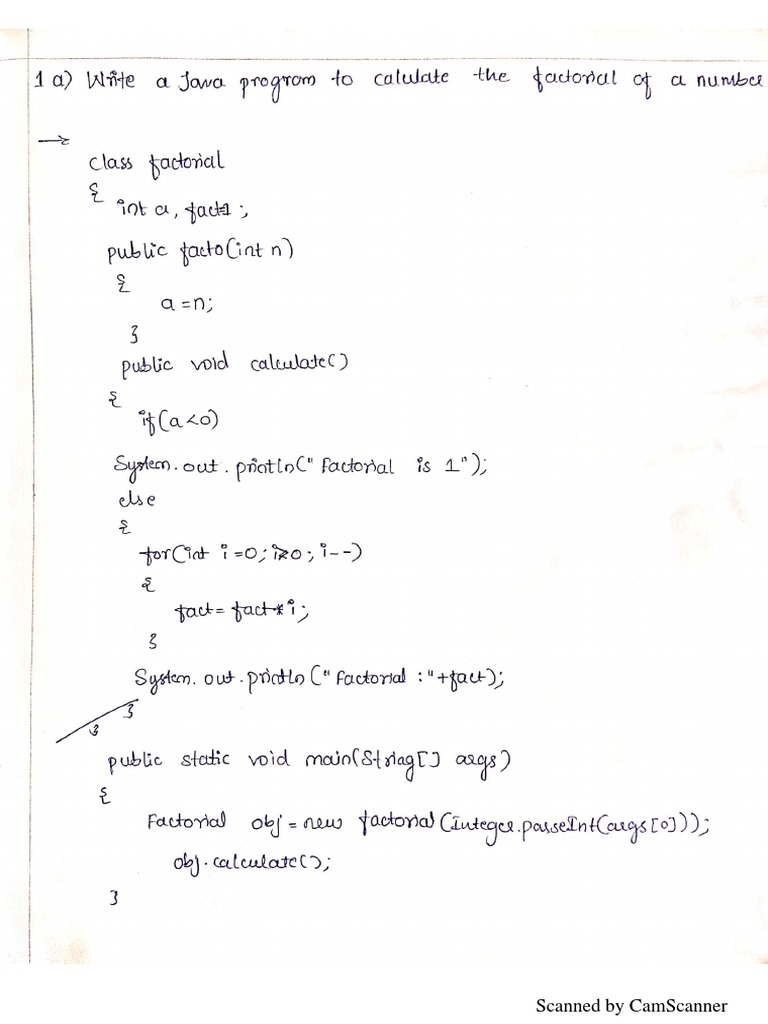 1 a) Write a Java program to calulate the factorial of a number
→
class factorial
{
int a, fact=1;
public facto(int n)
{
a=n;
}
public void calculate()
{
if(a<0)
System.out.println("Factorial is 1");
else
{
for(int i=0; i>0; i--)
{
fact= fact*i;
}
System.out.println("Factorial :"+fact);
}
}
public static void main(String[] args)
{
Factorial obj=new factorial(integer.parseInt(args[0]));
obj.calculate();
}
Scanned by CamScanner